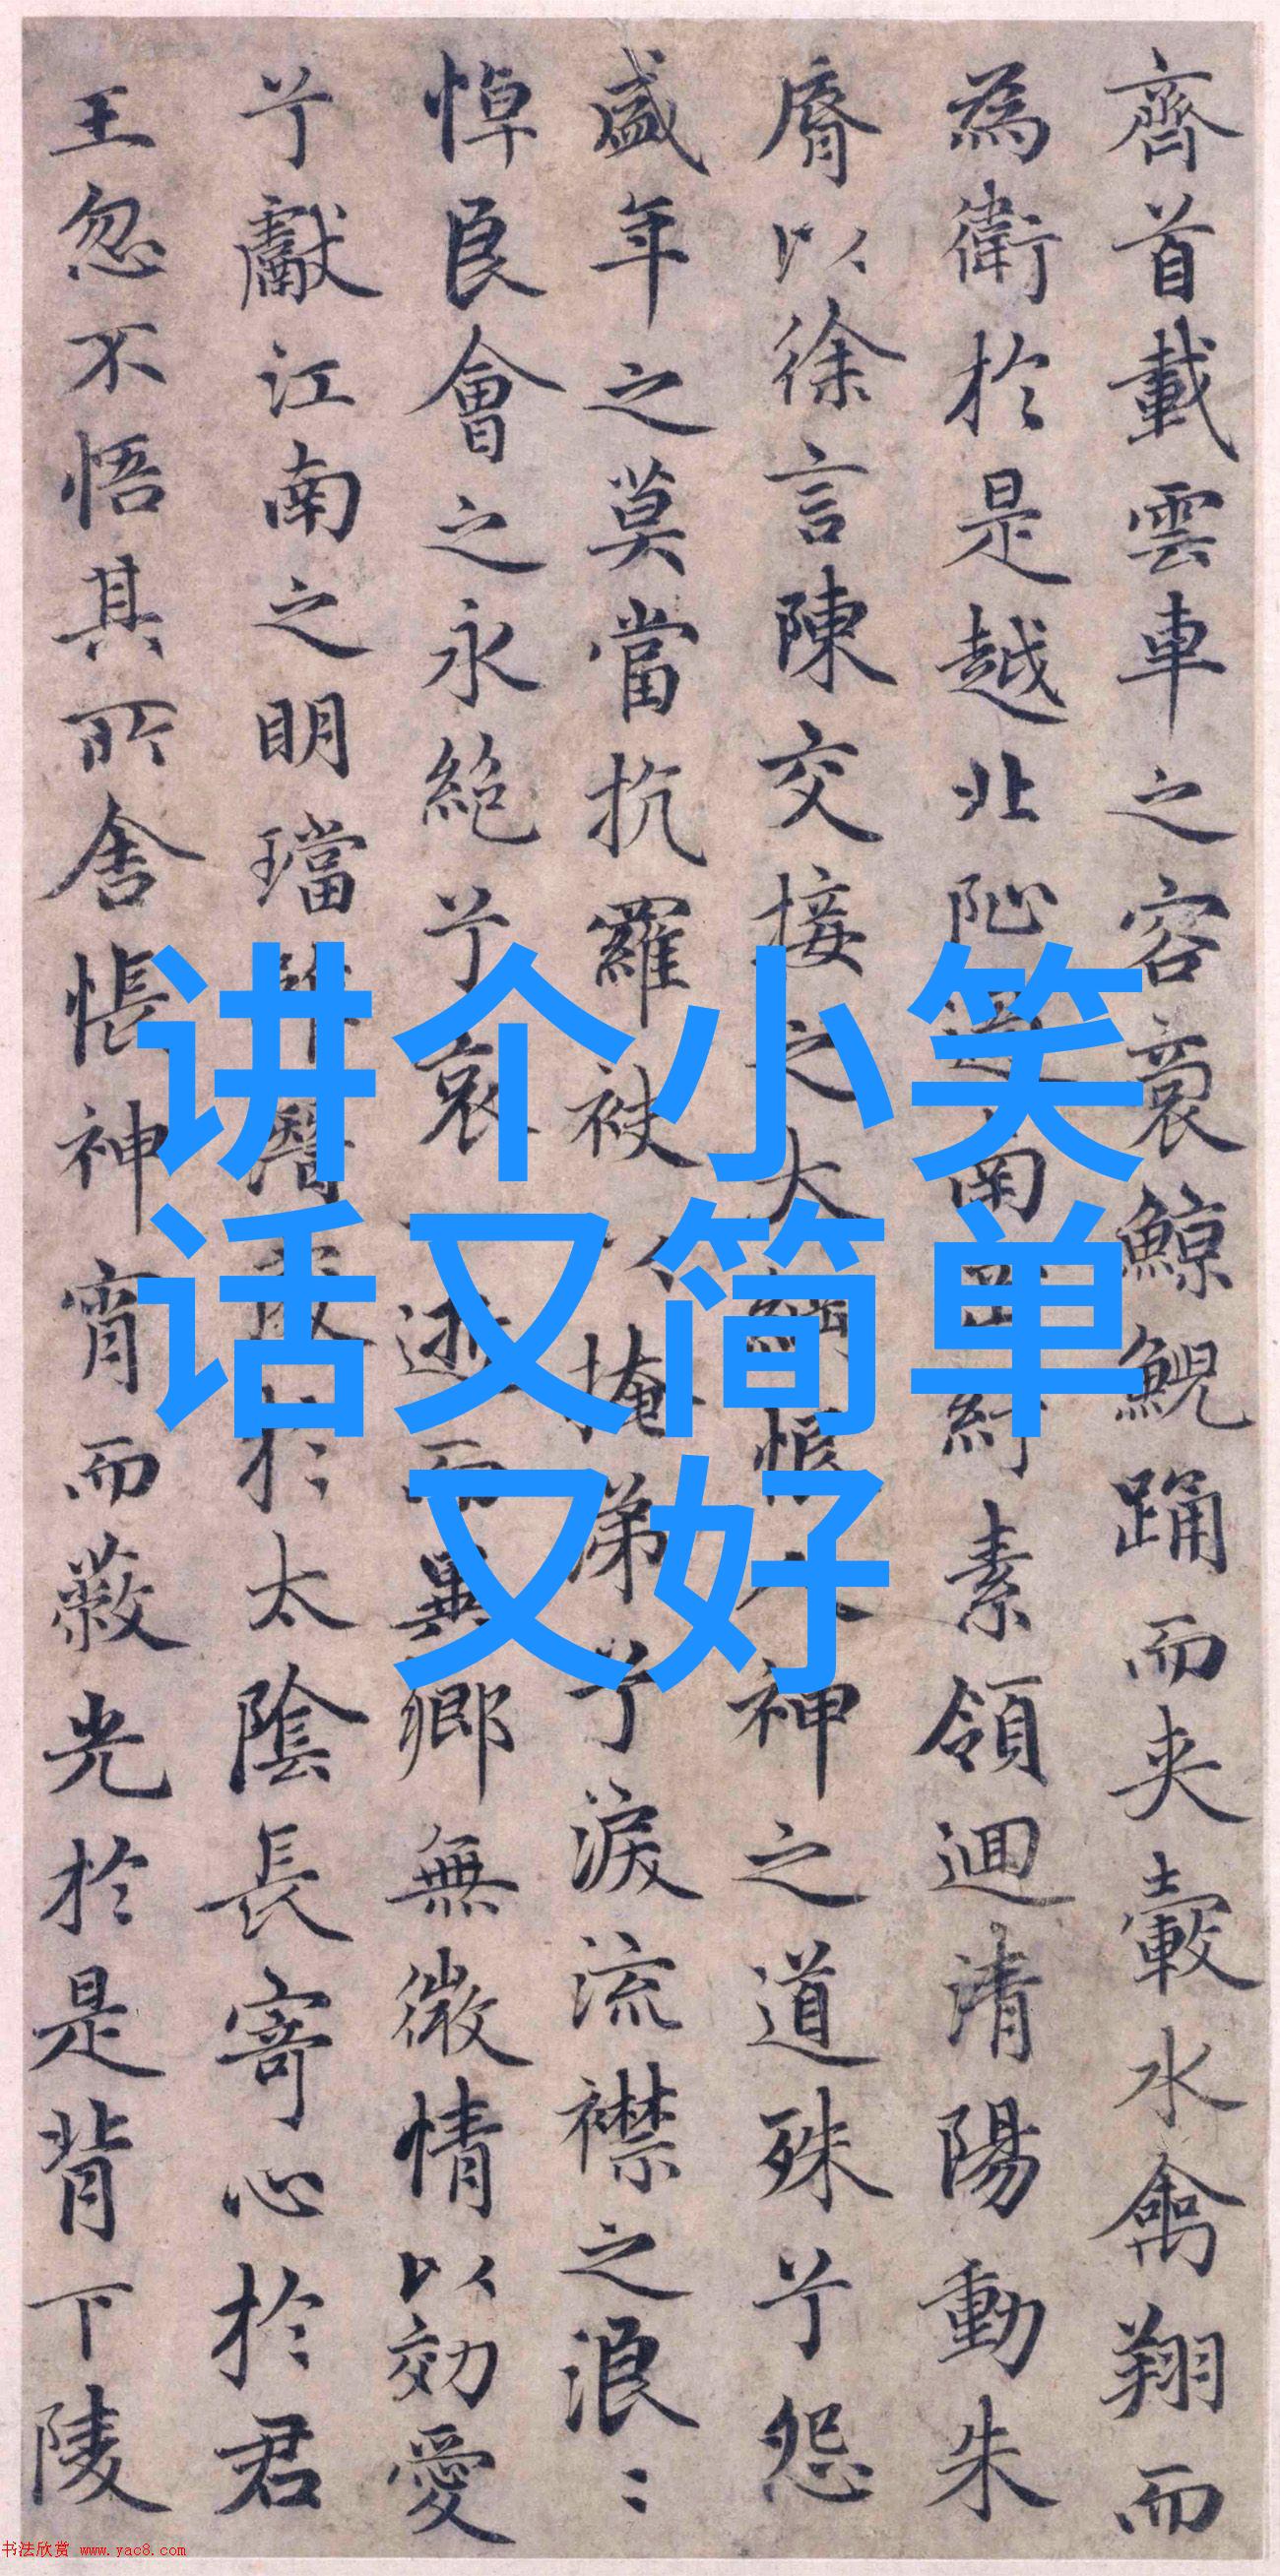 讲个小笑
话又简单
又好
齊首載雲車之容裔鯨鯢踊而夾轂水禽翔而
為衛於是越北沚過南岡紆素領迴清陽動朱
脣以徐言陳交接之大綱恨人神之道殊兮怨
盛年之莫當抗羅袂以掩涕兮淚流襟之浪〻
悼良會之永絕兮哀逝而異鄉無微情以効愛
兮獻江南之明璫潛於太陰長寄心於君
王忽不悟其所舍悵神宵而蔽光於是背下陵
书法欣赏 www.yac8.com